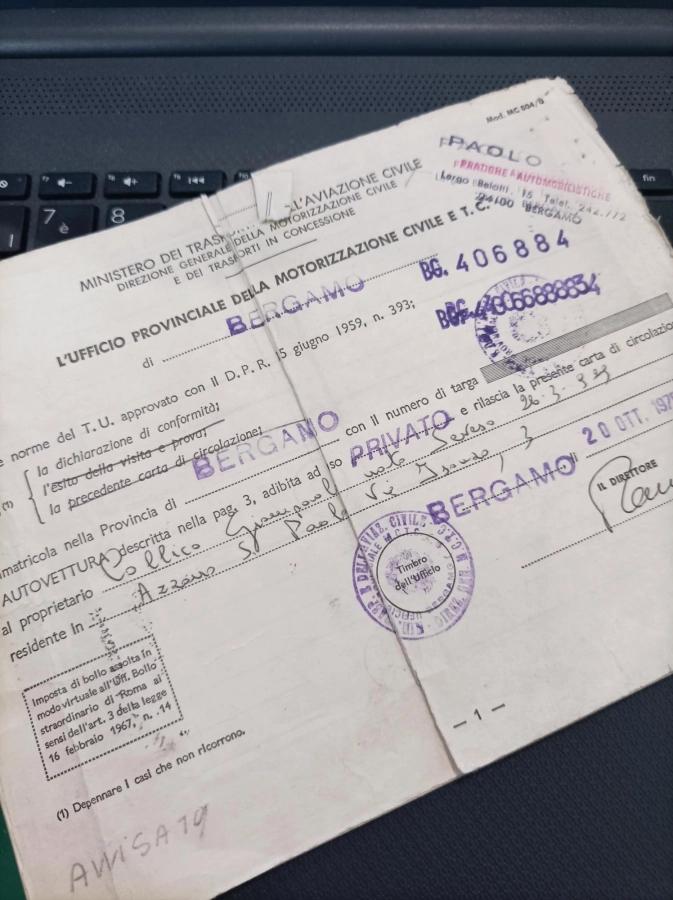 Mod. MC 804/B
PAOLO
PRATICHE AUTOMOBILISTICHE
Largo Belotti, 16 Telef. 242.772
24100 BERGAMO
MINISTERO DEI TRASP L'AVIAZIONE CIVILE
DIREZIONE GENERALE DELLA MOTORIZZAZIONE CIVILE
E DEI TRASPORTI IN CONCESSIONE
L'UFFICIO PROVINCIALE DELLA MOTORIZZAZIONE CIVILE E T. C.
di BERGAMO
BG. 406884
e norme del T. U. approvato con il D. P. R. 15 giugno 1959, n. 393;
(1)
la dichiarazione di conformità;
l'esito della visita e prova;
la precedente carta di circolazione;
matricola nella Provincia di BERGAMO con il numero di targa
AUTOVETTURA descritta nella pag. 3, adibita ad uso PRIVATO e rilascia la presente carta di circolazione
al proprietario Collico Giampaol nato 26-3-
residente in Azzano S Paolo Vi 3
BERGAMO li 20 OTT. 197
IL DIRETTORE
Timbro
dell'Ufficio
Imposta di bollo assolta in
modo virtuale all'Uff. Bollo
straordinario di Roma ai
sensi dell'art. 3 della legge
16 febbraio 1967, n. 14
(1) Depennare i casi che non ricorrono.
— 1 —
AWISA 19